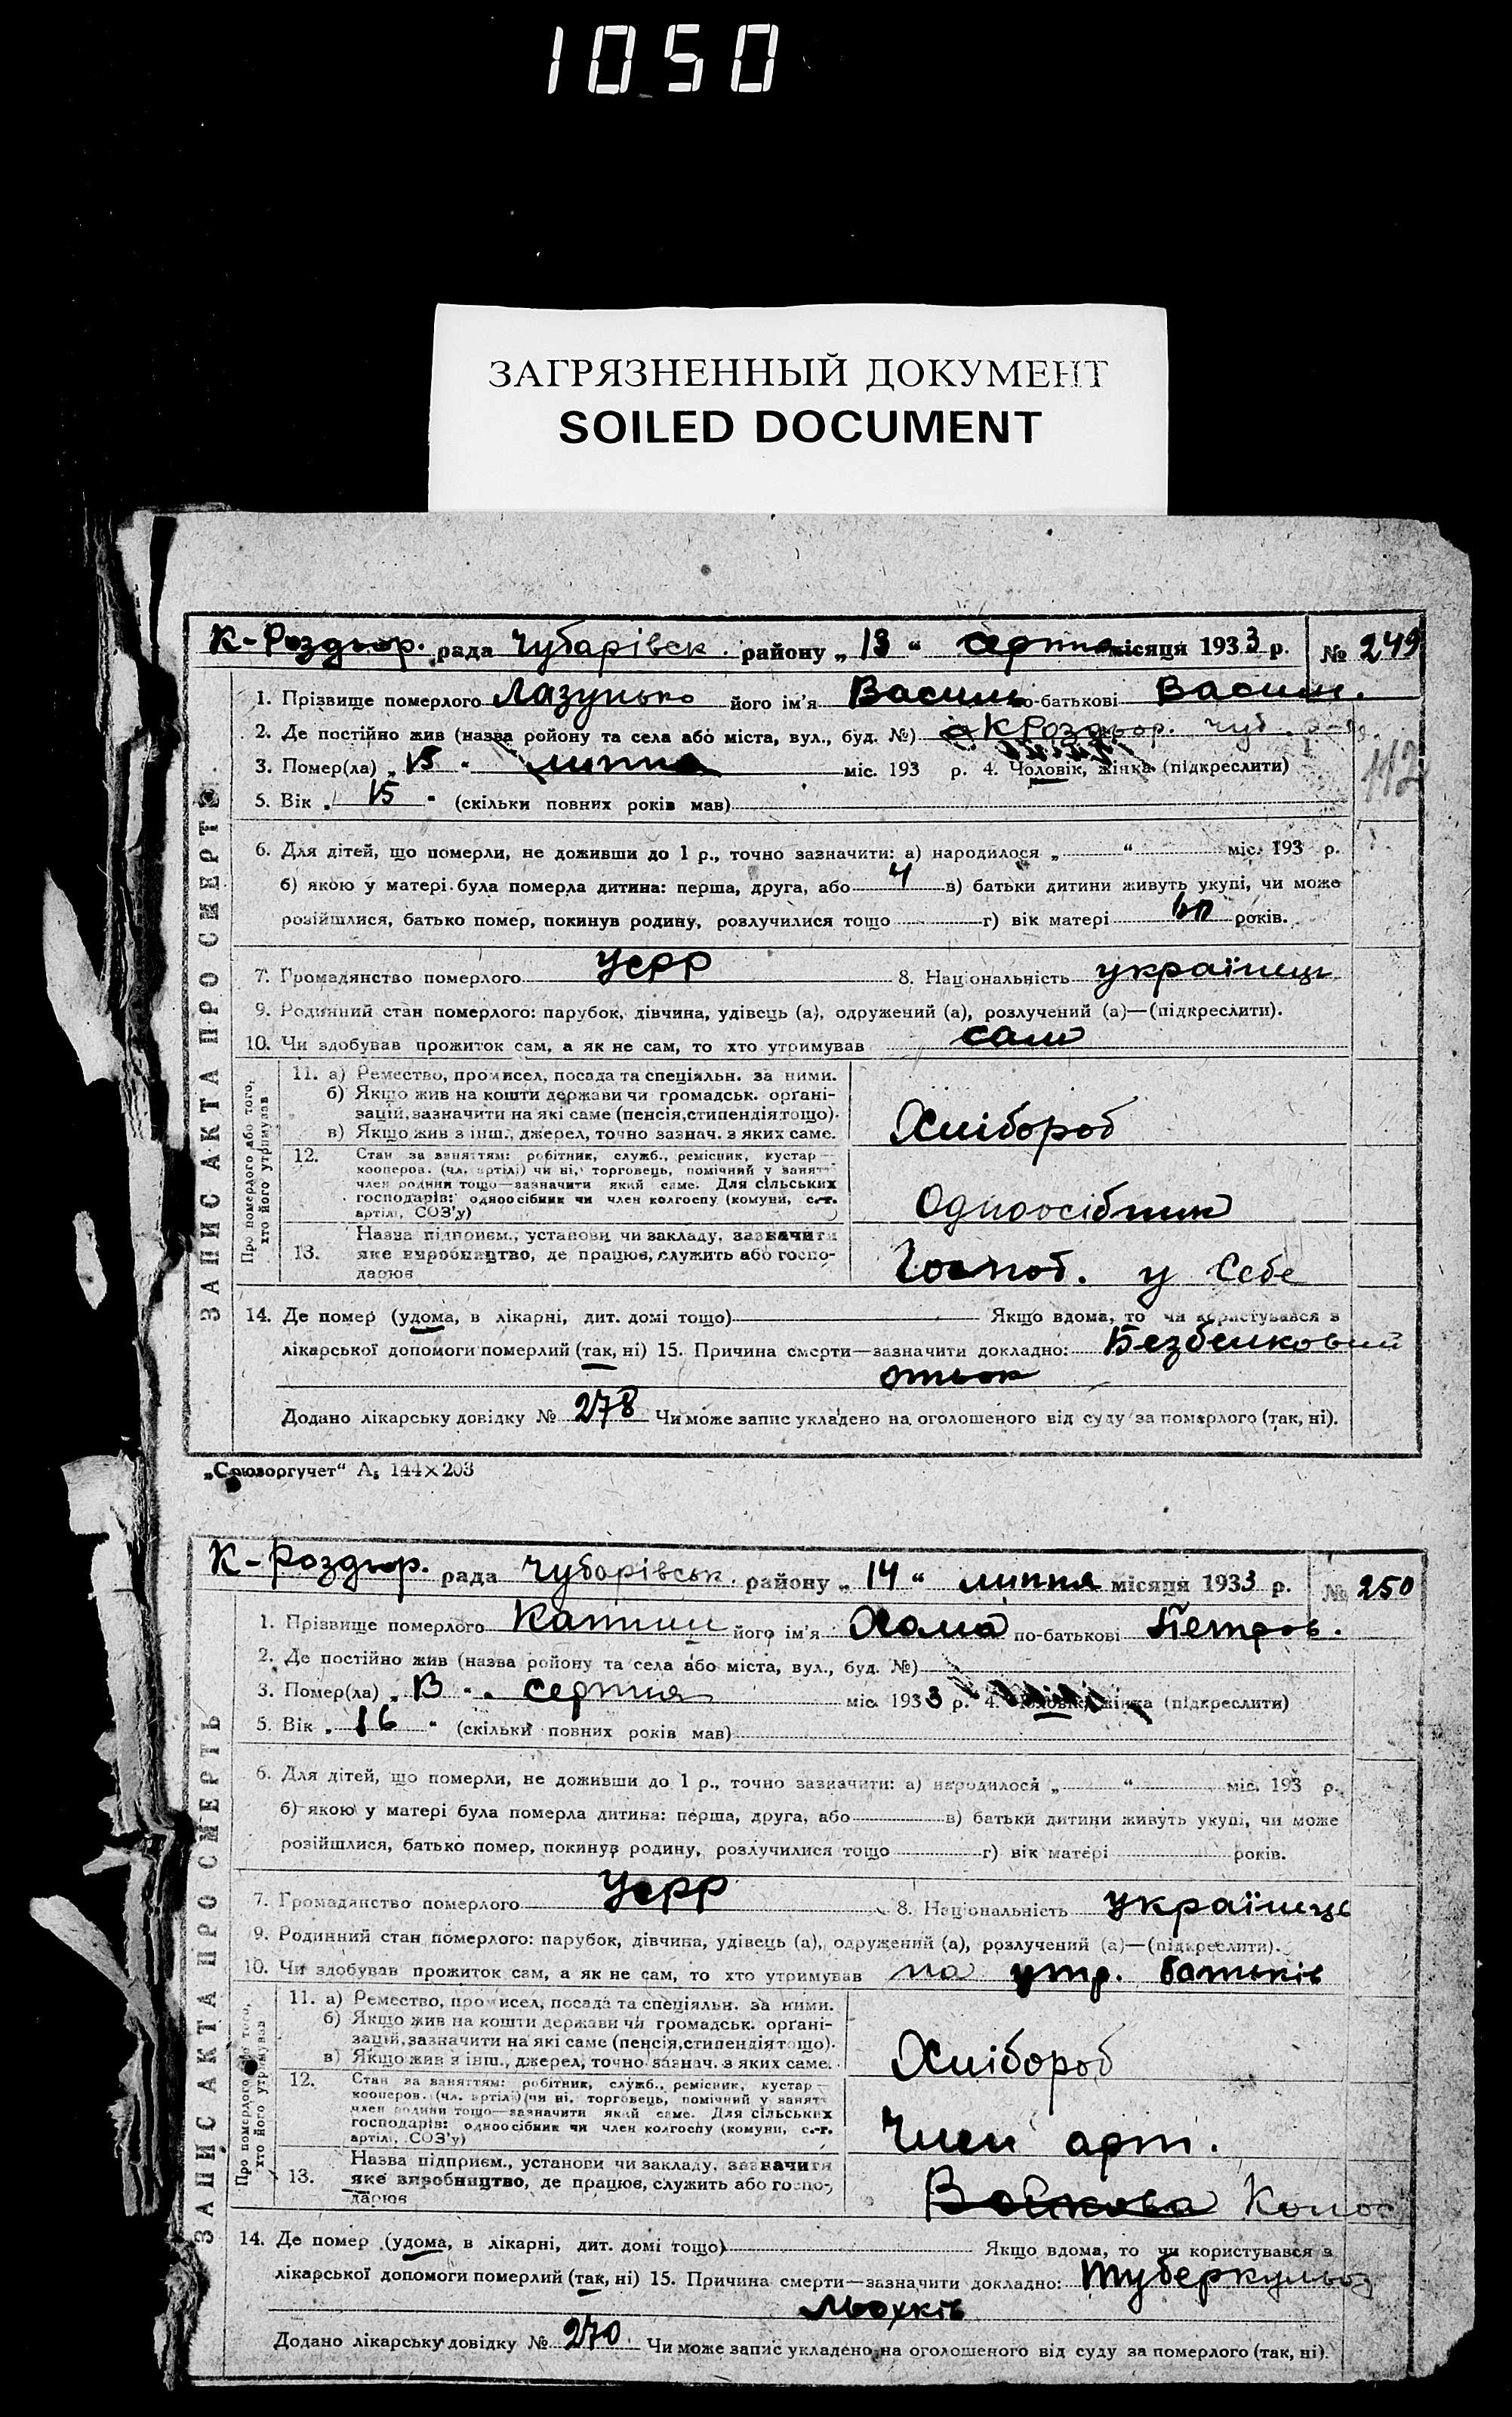 1050
ЗАГРЯЗНЕННЫЙ ДОКУМЕНТ
SOILED DOCUMENT
ЗАПИС АКТА ПРО СМЕРТЬ
К-Роздор. рада Чубарівск. району „13“ серпня місяця 1933 р. № 249
1. Прізвище померлого Лазунько його ім'я Василь по-батькові Васил.
2. Де постійно жив (назва ройону та села або міста, вул., буд. №) с К Роздор. Чуб.
3. Помер(ла) „15“ липня міс. 193 р. 4. Чоловік, жінка (підкреслити)
112
5. Вік „15“ (скільки повних років мав)
6. Для дітей, що померли, не доживши до 1 р., точно зазначити: а) народилося „ “ міс. 193 р.
б) якою у матері була померла дитина: перша, друга, або 4 в) батьки дитини живуть укупі, чи може
розійшлися, батько помер, покинув родину, розлучилися тощо г) вік матері років.
7. Громадянство померлого УСРР 8. Національність українець
9. Родинний стан померлого: парубок, дівчина, удівець (а), одружений (а), розлучений (а)—(підкреслити).
10. Чи здобував прожиток сам, а як не сам, то хто утримував сам
Про померлого або того, хто його утримував
11. а) Ремество, промисел, посада та спеціяльн. за ними.
б) Якщо жив на кошти держави чи громадськ. орґані-
зацій, зазначити на які саме (пенсія, стипендія тощо).
в) Якщо жив з інш., джерел, точно зазнач. з яких саме.
Хлібороб
12. Стан за заняттям: робітник, служб., ремісник, кустар—
кооперов. (чл. артілі) чи ні, торговець, помічний у занятт
член родини тощо—зазначити який саме. Для сільських
господарів: одноосібник чи член колгоспу (комуни, с.-г.
артілі, СОЗ'у)
Одноосібник
13. Назва підприєм., установи чи закладу, зазначити
яке виробництво, де працює, служить або госпо-
дарює
Господ. у себе
14. Де помер (удома, в лікарні, дит. домі тощо) Якщо вдома, то чи користувався з
лікарської допомоги померлий (так, ні) 15. Причина смерти—зазначити докладно: Безбелковий
отьок
Додано лікарську довідку № 278 Чи може запис укладено на оголошеного від суду за померлого (так, ні).
„Союзоргучет“ А₅ 144×203
ЗАПИС АКТА ПРО СМЕРТЬ
К-Роздор. рада Чубарівськ. району „14“ липня місяця 1933 р. № 250
1. Прізвище померлого його ім'я Хома по-батькові Петров.
2. Де постійно жив (назва ройону та села або міста, вул., буд. №)
3. Помер(ла) „13“ серпня міс. 1933 р. 4. Чоловік, жінка (підкреслити)
5. Вік „16“ (скільки повних років мав)
6. Для дітей, що померли, не доживши до 1 р., точно зазначити: а) народилося „ “ міс. 193 р.
б) якою у матері була померла дитина: перша, друга, або в) батьки дитини живуть укупі, чи може
розійшлися, батько помер, покинув родину, розлучилися тощо г) вік матері років.
7. Громадянство померлого УСРР 8. Національність українець
9. Родинний стан померлого: парубок, дівчина, удівець (а), одружений (а), розлучений (а)—(підкреслити).
10. Чи здобував прожиток сам, а як не сам, то хто утримував на утр. батьків
Про померлого або того, хто його утримував
11. а) Ремество, промисел, посада та спеціяльн. за ними.
б) Якщо жив на кошти держави чи громадськ. орґані-
зацій, зазначити на які саме (пенсія, стипендія тощо).
в) Якщо жив з інш., джерел, точно зазнач. з яких саме.
Хлібороб
12. Стан за заняттям: робітник, служб., ремісник, кустар—
кооперов. (чл. артілі) чи ні, торговець, помічний у занятт
член родини тощо—зазначити який саме. Для сільських
господарів: одноосібник чи член колгоспу (комуни, с.-г.
артілі, СОЗ'у)
Член арт.
13. Назва підприєм., установи чи закладу, зазначити
яке виробництво, де працює, служить або госпо-
дарює
Колос
14. Де помер (удома, в лікарні, дит. домі тощо) Якщо вдома, то чи користувався з
лікарської допомоги померлий (так, ні) 15. Причина смерти—зазначити докладно: Туберкульоз
льохків
Додано лікарську довідку № 270 Чи може запис укладено на оголошеного від суду за померлого (так, ні).